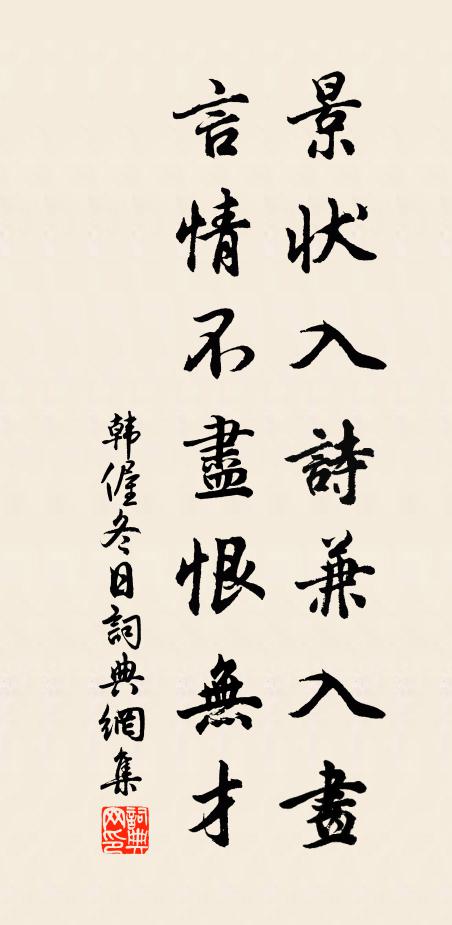 景状入詩兼入畫
言情不盡恨無才
韩偓冬日詞典網集
詞典網印